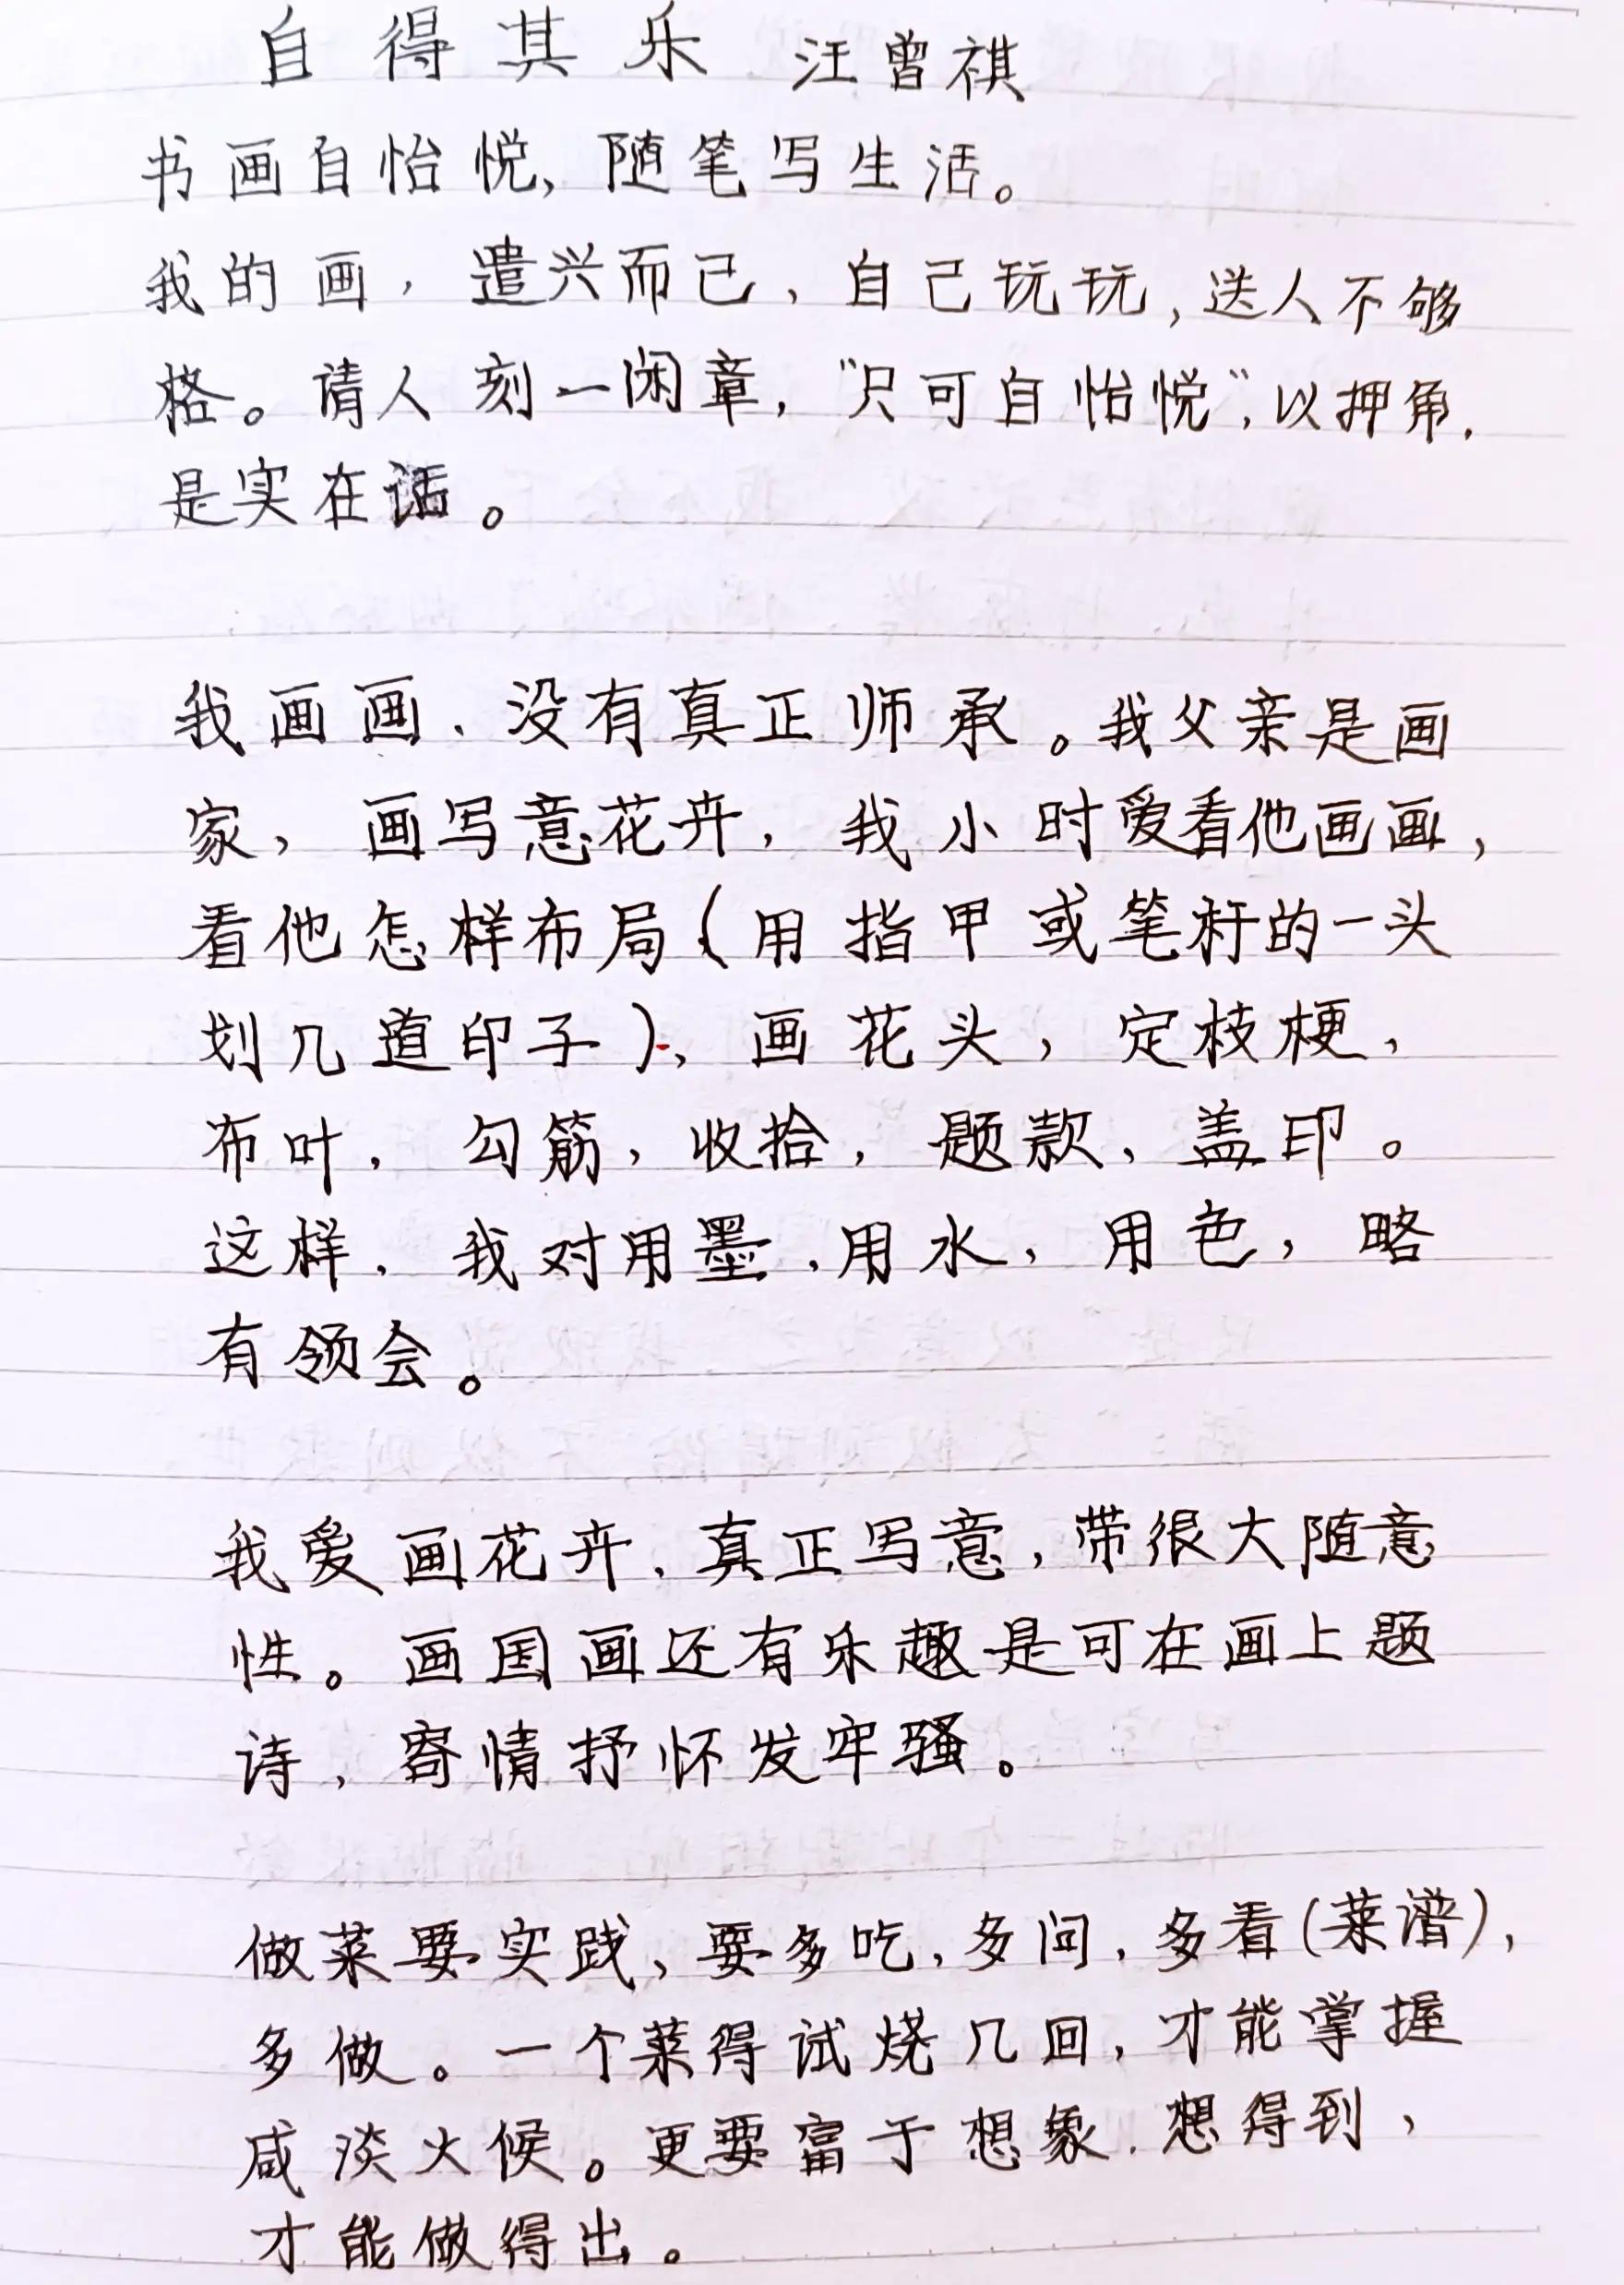 自得其乐 汪曾祺
书画自怡悦，随笔写生活。
我的画，遣兴而已，自己玩玩，送人不够
格。请人刻一闲章，“只可自怡悦”，以押角，
是实在话。
我画画，没有真正师承。我父亲是画
家，画写意花卉，我小时爱看他画画，
看他怎样布局（用指甲或笔杆的一头
划几道印子），画花头，定枝梗，
布叶，勾筋，收拾，题款，盖印。
这样，我对用墨，用水，用色，略
有领会。
我爱画花卉，真正写意，带很大随意
性。画国画还有乐趣是可在画上题
诗，寄情抒怀发牢骚。
做菜要实践，要多吃，多问，多看（菜谱），
多做。一个菜得试烧几回，才能掌握
咸淡火候。更要富于想象，想得到，
才能做得出。